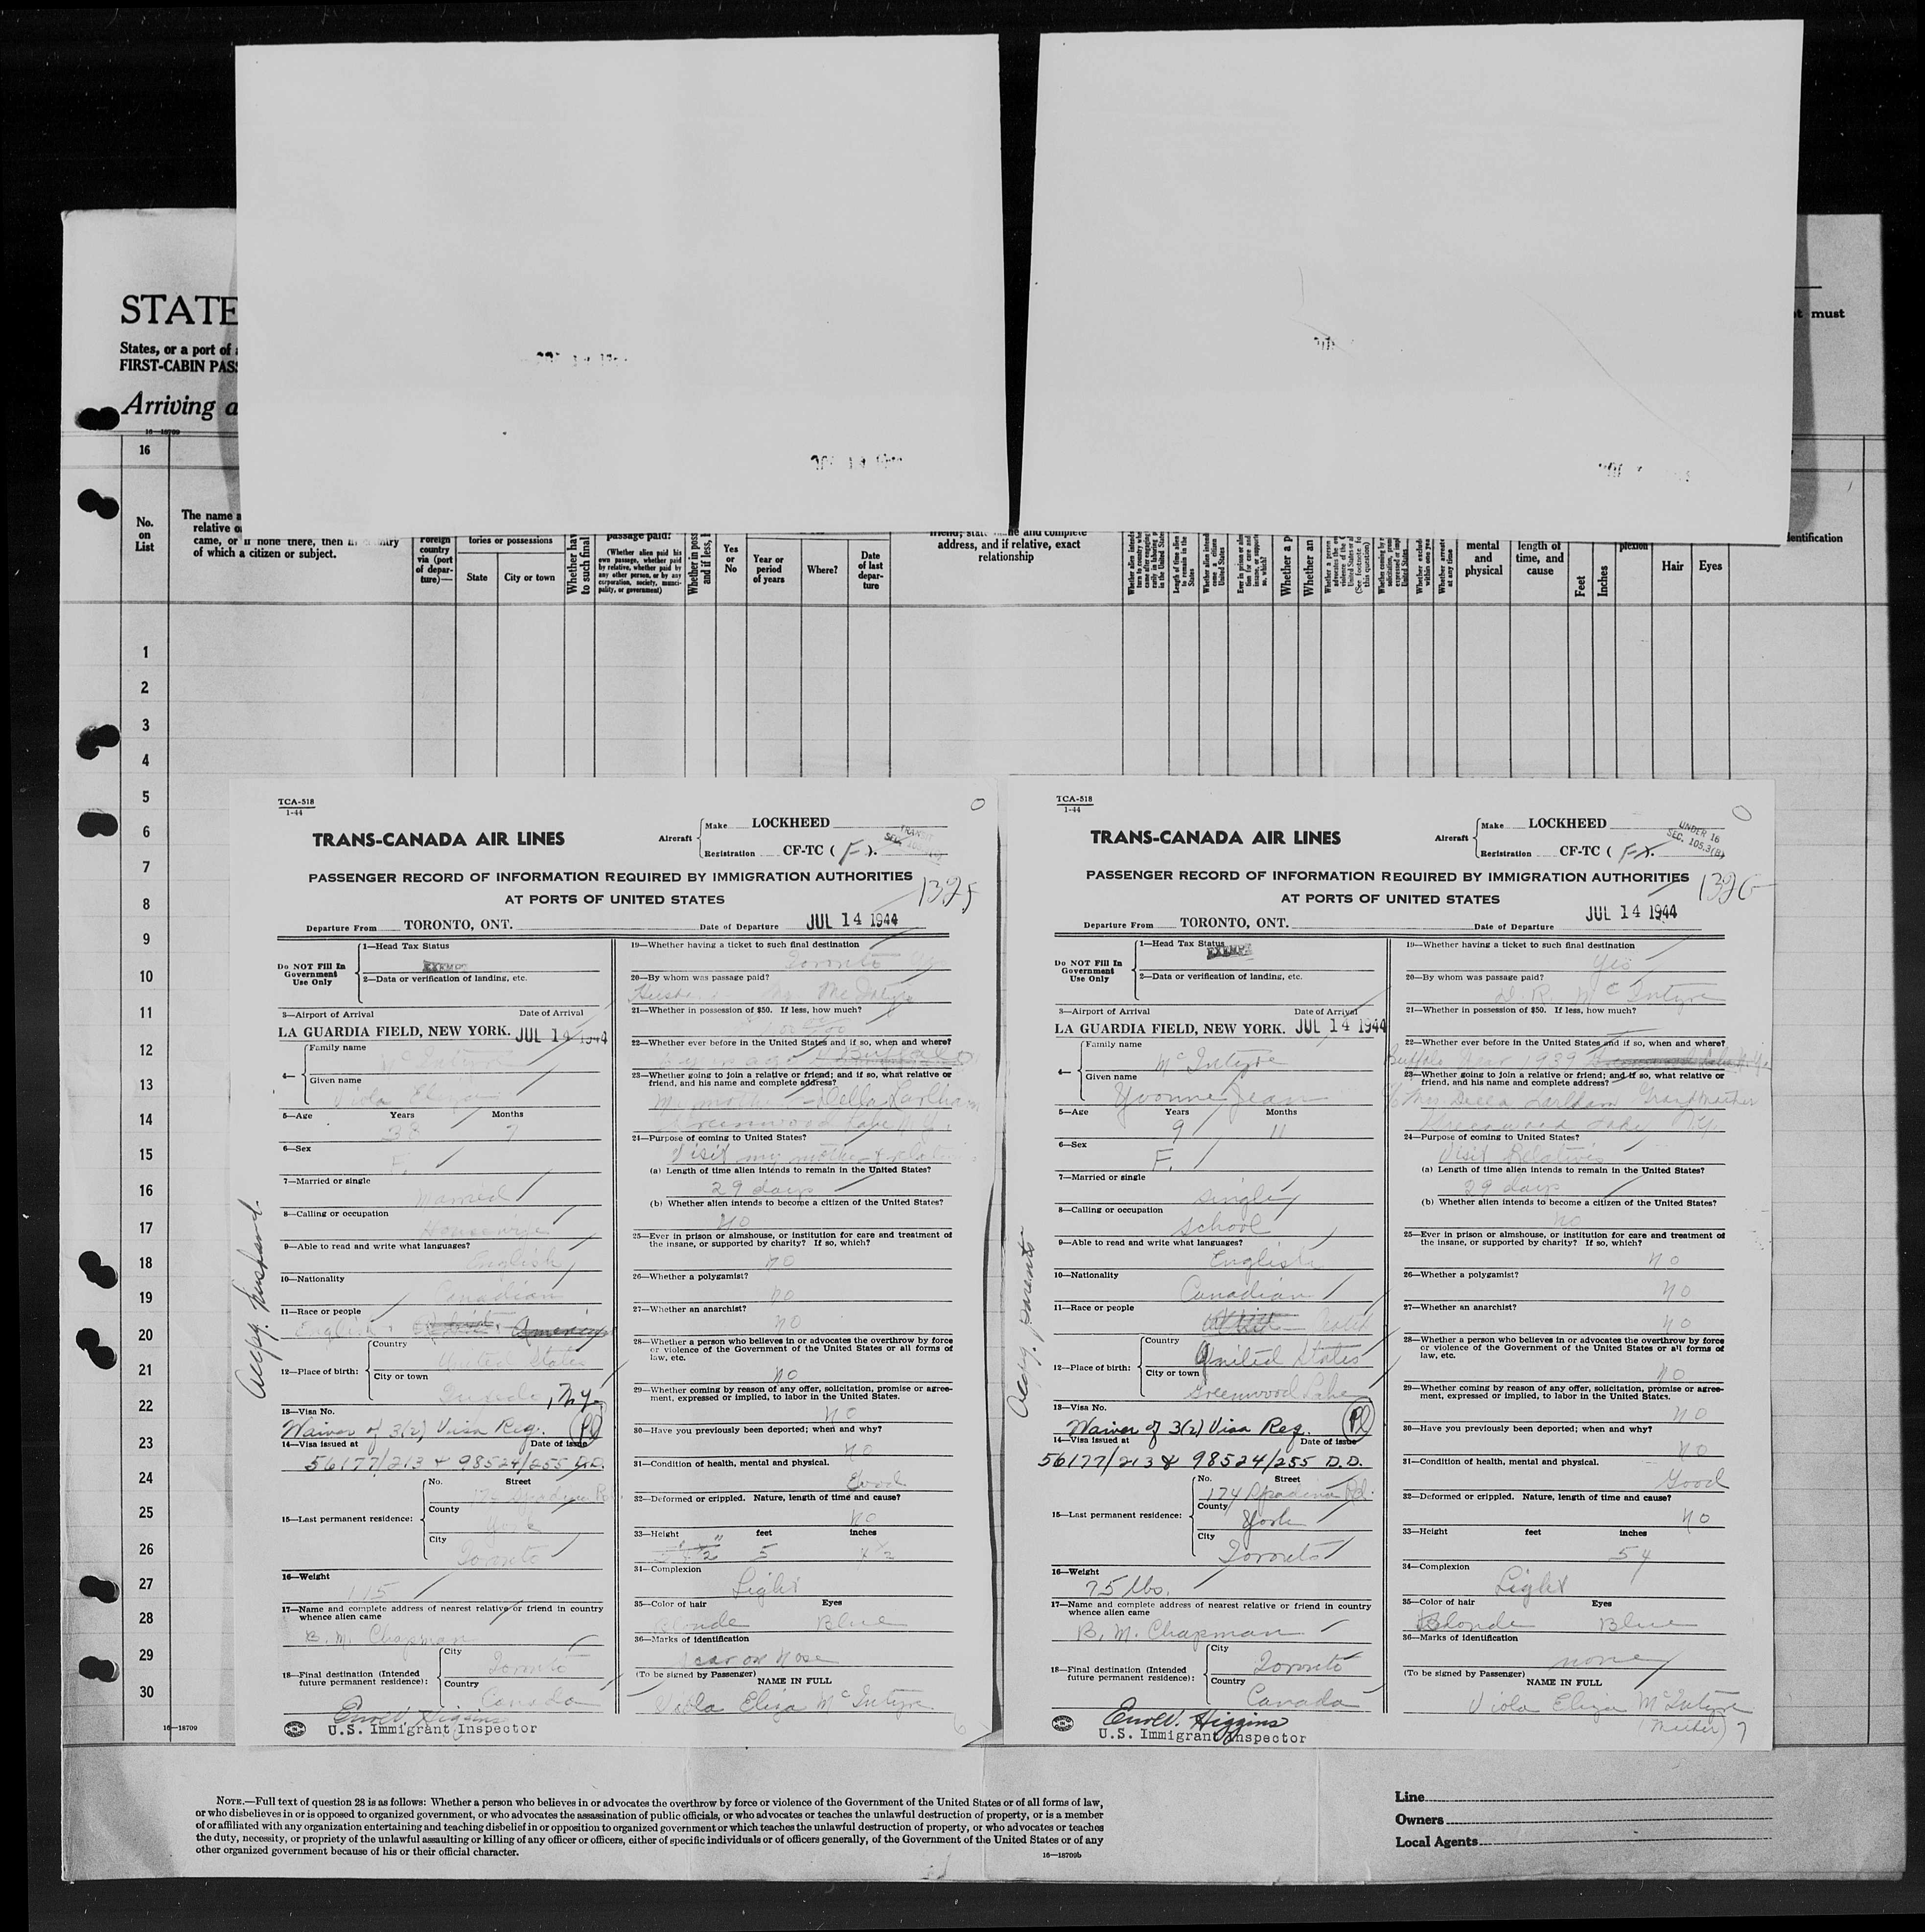 STATE
States, or a port of a
FIRST-CABIN PASS
Arriving a
t must
16—18709
16
No.
on
List
The name a
relative o
came, or if none there, then in country
of which a citizen or subject.
Foreign
country
via (port
of depar-
ture)—
tories or possessions
State
City or town
Whether hav
to such final
passage paid?
(Whether alien paid his
own passage, whether paid
by relative, whether paid by
any other person, or by any
corporation, society, munici-
pality, or government)
Whether in poss
and if less, h
Yes
or
No
Year or
period
of years
Where?
Date
of last
depar-
ture
friend, state name and complete
address, and if relative, exact
relationship
Whether a p
Whether an
mental
and
physical
length of
time, and
cause
Feet
Inches
plexion
Hair
Eyes
dentification
1
2
3
4
5
6
7
8
9
10
11
12
13
14
15
16
17
18
19
20
21
22
23
24
25
26
27
28
29
30
16—18709
TCA-518
1-44
TRANS-CANADA AIR LINES
Aircraft
Make LOCKHEED
Registration CF-TC ( F ).
PASSENGER RECORD OF INFORMATION REQUIRED BY IMMIGRATION AUTHORITIES
AT PORTS OF UNITED STATES
1325
Departure From TORONTO, ONT. Date of Departure JUL 14 1944
Do NOT Fill In
Government
Use Only
1—Head Tax Status
EXEMPT
2—Data or verification of landing, etc.
3—Airport of Arrival Date of Arrival
LA GUARDIA FIELD, NEW YORK. JUL 14 1944
4—
Family name
McIntyre
Given name
Viola Eliza
5—Age Years Months
38 7
6—Sex
F.
7—Married or single
Married
8—Calling or occupation
Housewife
9—Able to read and write what languages?
English
10—Nationality
Canadian
11—Race or people
English American
12—Place of birth:
Country
United States
City or town
, N.Y.
13—Visa No.
Waiver of 3(2) Visa Reg.
14—Visa issued at Date of issue
56177/213 & 98524/255 D.D.
15—Last permanent residence:
No. Street
174 Spadina Rd.
County
York
City
Toronto
16—Weight
115
17—Name and complete address of nearest relative or friend in country
whence alien came
B. M. Chapman
18—Final destination (Intended
future permanent residence):
City
Toronto
Country
Canada
Errol V. Higgins
U.S. Immigrant Inspector
Accpg. husband.
19—Whether having a ticket to such final destination
Toronto Yes
20—By whom was passage paid?
Husband Mr. McIntyre
21—Whether in possession of $50. If less, how much?
22—Whether ever before in the United States and if so, when and where?
23—Whether going to join a relative or friend; and if so, what relative or
friend, and his name and complete address?
My mother - Della Earlham
Greenwood Lake N.Y.
24—Purpose of coming to United States?
Visit my mother & relatives
(a) Length of time alien intends to remain in the United States?
29 days
(b) Whether alien intends to become a citizen of the United States?
No
25—Ever in prison or almshouse, or institution for care and treatment of
the insane, or supported by charity? If so, which?
no
26—Whether a polygamist?
no
27—Whether an anarchist?
no
28—Whether a person who believes in or advocates the overthrow by force
or violence of the Government of the United States or all forms of
law, etc.
no
29—Whether coming by reason of any offer, solicitation, promise or agree-
ment, expressed or implied, to labor in the United States.
no
30—Have you previously been deported; when and why?
no
31—Condition of health, mental and physical.
Good
32—Deformed or crippled. Nature, length of time and cause?
no
33—Height feet inches
5 4½
34—Complexion
Light
35—Color of hair Eyes
Blonde Blue
36—Marks of identification
Scar on Nose
(To be signed by Passenger) NAME IN FULL
Viola Eliza McIntyre
6
TCA-518
1-44
TRANS-CANADA AIR LINES
Aircraft
Make LOCKHEED
Registration CF-TC ( FX.
UNDER 16
SEC. 105.3(B)
PASSENGER RECORD OF INFORMATION REQUIRED BY IMMIGRATION AUTHORITIES
AT PORTS OF UNITED STATES
1326
Departure From TORONTO, ONT. Date of Departure JUL 14 1944
Do NOT Fill In
Government
Use Only
1—Head Tax Status
EXEMPT
2—Data or verification of landing, etc.
3—Airport of Arrival Date of Arrival
LA GUARDIA FIELD, NEW YORK. JUL 14 1944
4—
Family name
McIntyre
Given name
Yvonne Jean
5—Age Years Months
9 11
6—Sex
F.
7—Married or single
Single
8—Calling or occupation
School
9—Able to read and write what languages?
English
10—Nationality
Canadian
11—Race or people
12—Place of birth:
Country
United States
City or town
Greenwood Lake
13—Visa No.
Waiver of 3(2) Visa Reg.
14—Visa issued at Date of issue
56177/213 & 98524/255 D.D.
15—Last permanent residence:
No. Street
174 Spadina Rd.
County
York
City
Toronto
16—Weight
75 lbs.
17—Name and complete address of nearest relative or friend in country
whence alien came
B. M. Chapman
18—Final destination (Intended
future permanent residence):
City
Toronto
Country
Canada
Errol V. Higgins
U.S. Immigrant Inspector
Accpg. parents
19—Whether having a ticket to such final destination
Yes
20—By whom was passage paid?
D. R. McIntyre
21—Whether in possession of $50. If less, how much?
22—Whether ever before in the United States and if so, when and where?
Buffalo Year 1939
23—Whether going to join a relative or friend; and if so, what relative or
friend, and his name and complete address?
% Mrs. Della Earlham Grandmother
Greenwood Lake N.Y.
24—Purpose of coming to United States?
Visit Relatives
(a) Length of time alien intends to remain in the United States?
29 days
(b) Whether alien intends to become a citizen of the United States?
no
25—Ever in prison or almshouse, or institution for care and treatment of
the insane, or supported by charity? If so, which?
no
26—Whether a polygamist?
no
27—Whether an anarchist?
no
28—Whether a person who believes in or advocates the overthrow by force
or violence of the Government of the United States or all forms of
law, etc.
no
29—Whether coming by reason of any offer, solicitation, promise or agree-
ment, expressed or implied, to labor in the United States.
no
30—Have you previously been deported; when and why?
no
31—Condition of health, mental and physical.
Good
32—Deformed or crippled. Nature, length of time and cause?
no
33—Height feet inches
54
34—Complexion
Light
35—Color of hair Eyes
Blonde Blue
36—Marks of identification
none
(To be signed by Passenger) NAME IN FULL
Viola Eliza McIntyre
(Mother) 7
NOTE.—Full text of question 28 is as follows: Whether a person who believes in or advocates the overthrow by force or violence of the Government of the United States or of all forms of law,
or who disbelieves in or is opposed to organized government, or who advocates the assassination of public officials, or who advocates or teaches the unlawful destruction of property, or is a member
of or affiliated with any organization entertaining and teaching disbelief in or opposition to organized government or which teaches the unlawful destruction of property, or who advocates or teaches
the duty, necessity, or propriety of the unlawful assaulting or killing of any officer or officers, either of specific individuals or of officers generally, of the Government of the United States or of any
other organized government because of his or their official character.
16—18709b
Line
Owners
Local Agents